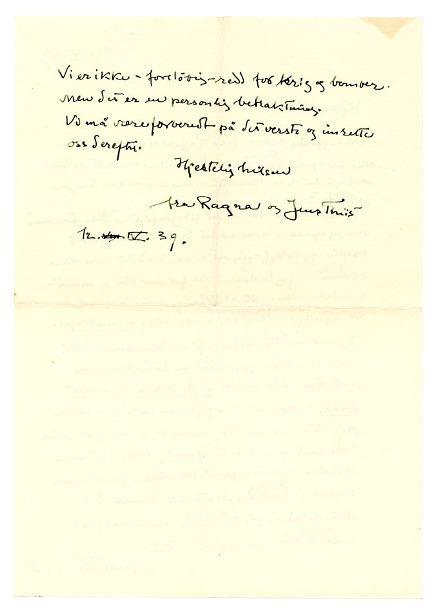 Vi er ikke - foreløbig - redd for krig og bomber.
Men det er en personlig betraktning.
Vi må være forberedt på det verste og inrette
oss derefter.
Hjertelig hilsen
fra Ragna og Jens Thiis
12. IV. 39.